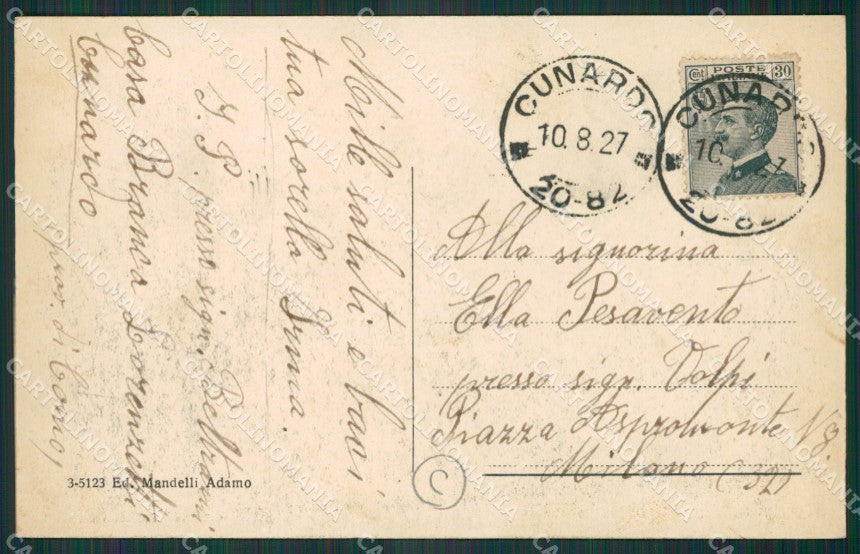 Mille saluti e baci,
tua sorella Irma.
I. P. presso sign. Beltrami
Casa Branca Lorenzo
Cunardo
prov. di Como,
3-5123 Ed. Mandelli Adamo
CUNARDO
10.8.27
20-82
CUNARDO
10.
20-82
Cent POSTE 30
Alla signorina
Ella Pesavento
presso sign. Volpi
Piazza Aspromonte
Milano (32)
C
CARTOLINOMANIA